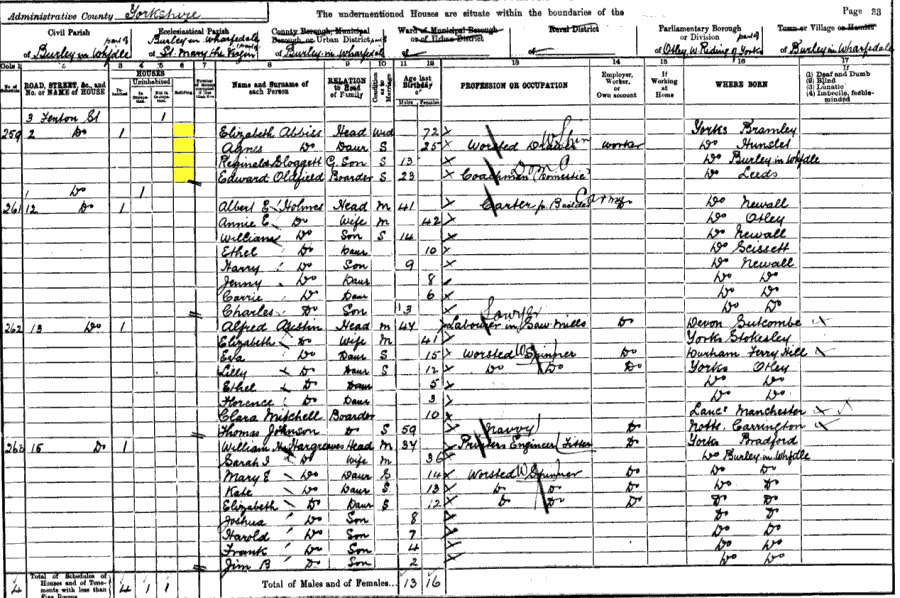 Administrative County Yorkshire
The undermentioned Houses are situate within the boundaries of the
Page 33
Civil Parish
Ecclesiastical Parish
County Borough, Municipal Borough, or Urban District
Ward of Municipal Borough or of Urban District
Rural District
Parliamentary Borough or Division
Town or Village or Hamlet
part of
of Burley in Whfdle
Burley in Wharfedale part of
of St. Mary the Virgin
of Burley in Wharfedale
of
part of
of Otley W. Riding of Yorks
part of
of Burley in Wharfedale
Cols 1 2 3 4 5 6 7 8 9 10 11 12 13 14 15 16 17
ROAD, STREET, &c., and No. or NAME of HOUSE
HOUSES
Uninhabited
Building
Name and Surname of each Person
RELATION to Head of Family
Age last Birthday of
Males Females
PROFESSION OR OCCUPATION
Employer, Worker, or Own account
If Working at Home
WHERE BORN
(1) Deaf and Dumb
(2) Blind
(3) Lunatic
(4) Imbecile, feeble-minded
3 Fenton St 1
259 2 Do 1 Elizabeth Abbies Head Wid 72 Yorks Bramley
Agnes Do Daur S 25 Worsted worker Do Hunslet
Reginald Bloggett C. Son S 13 Do Burley in Whfdle
Edward Oldfield Boarder S 23 Coachman (Domestic) Do Leeds
1 Do 1
261 12 Do 1 Albert E. Holmes Head M 41 Carter for Builder Do Do Newall
Annie E. Do Wife M 42 Do Otley
William Do Son S 14 Do Newall
Ethel Do Daur 10 Do Scissett
Harry Do Son 9 Do Newall
Jenny Do Daur 8 Do Do
Carrie Do Daur 6 Do Do
Charles Do Son 3 Do Do
262 13 Do 1 Alfred Head M 44 Labourer in Saw Mills Do Devon
Sawyer
Elizabeth Do Wife M 41 Yorks Stokesley
Eva Do Daur S 15 Worsted Spinner Do Durham Ferry Hill
Lilly Do Daur S 12 Do Do Do Yorks Otley
Ethel Do Daur 5 Do Do
Florence Do Daur 3 Do Do
Clara Mitchell Boarder 10 Lancs Manchester
Thomas Johnson Do S 59 Navvy Do Notts. Carrington
263 15 Do 1 William H. Hargreaves Head M 37 Printers Engineer Fitter Do Yorks Bradford
Sarah Do Wife M 36 Do Burley in Whfdle
Mary E Do Daur S 14 Worsted Spinner Do Do Do
Kate Do Daur S 13 Do Do Do Do Do
Elizabeth Do Daur S 12 Do Do Do Do Do
Joshua Do Son 8 Do Do
Harold Do Son 7 Do Do
Frank Do Son 4 Do Do
Jim B Do Son 2 Do Do
4 Total of Schedules of Houses and of Tenements with less than Five Rooms 4 1 1 Total of Males and of Females... 13 16